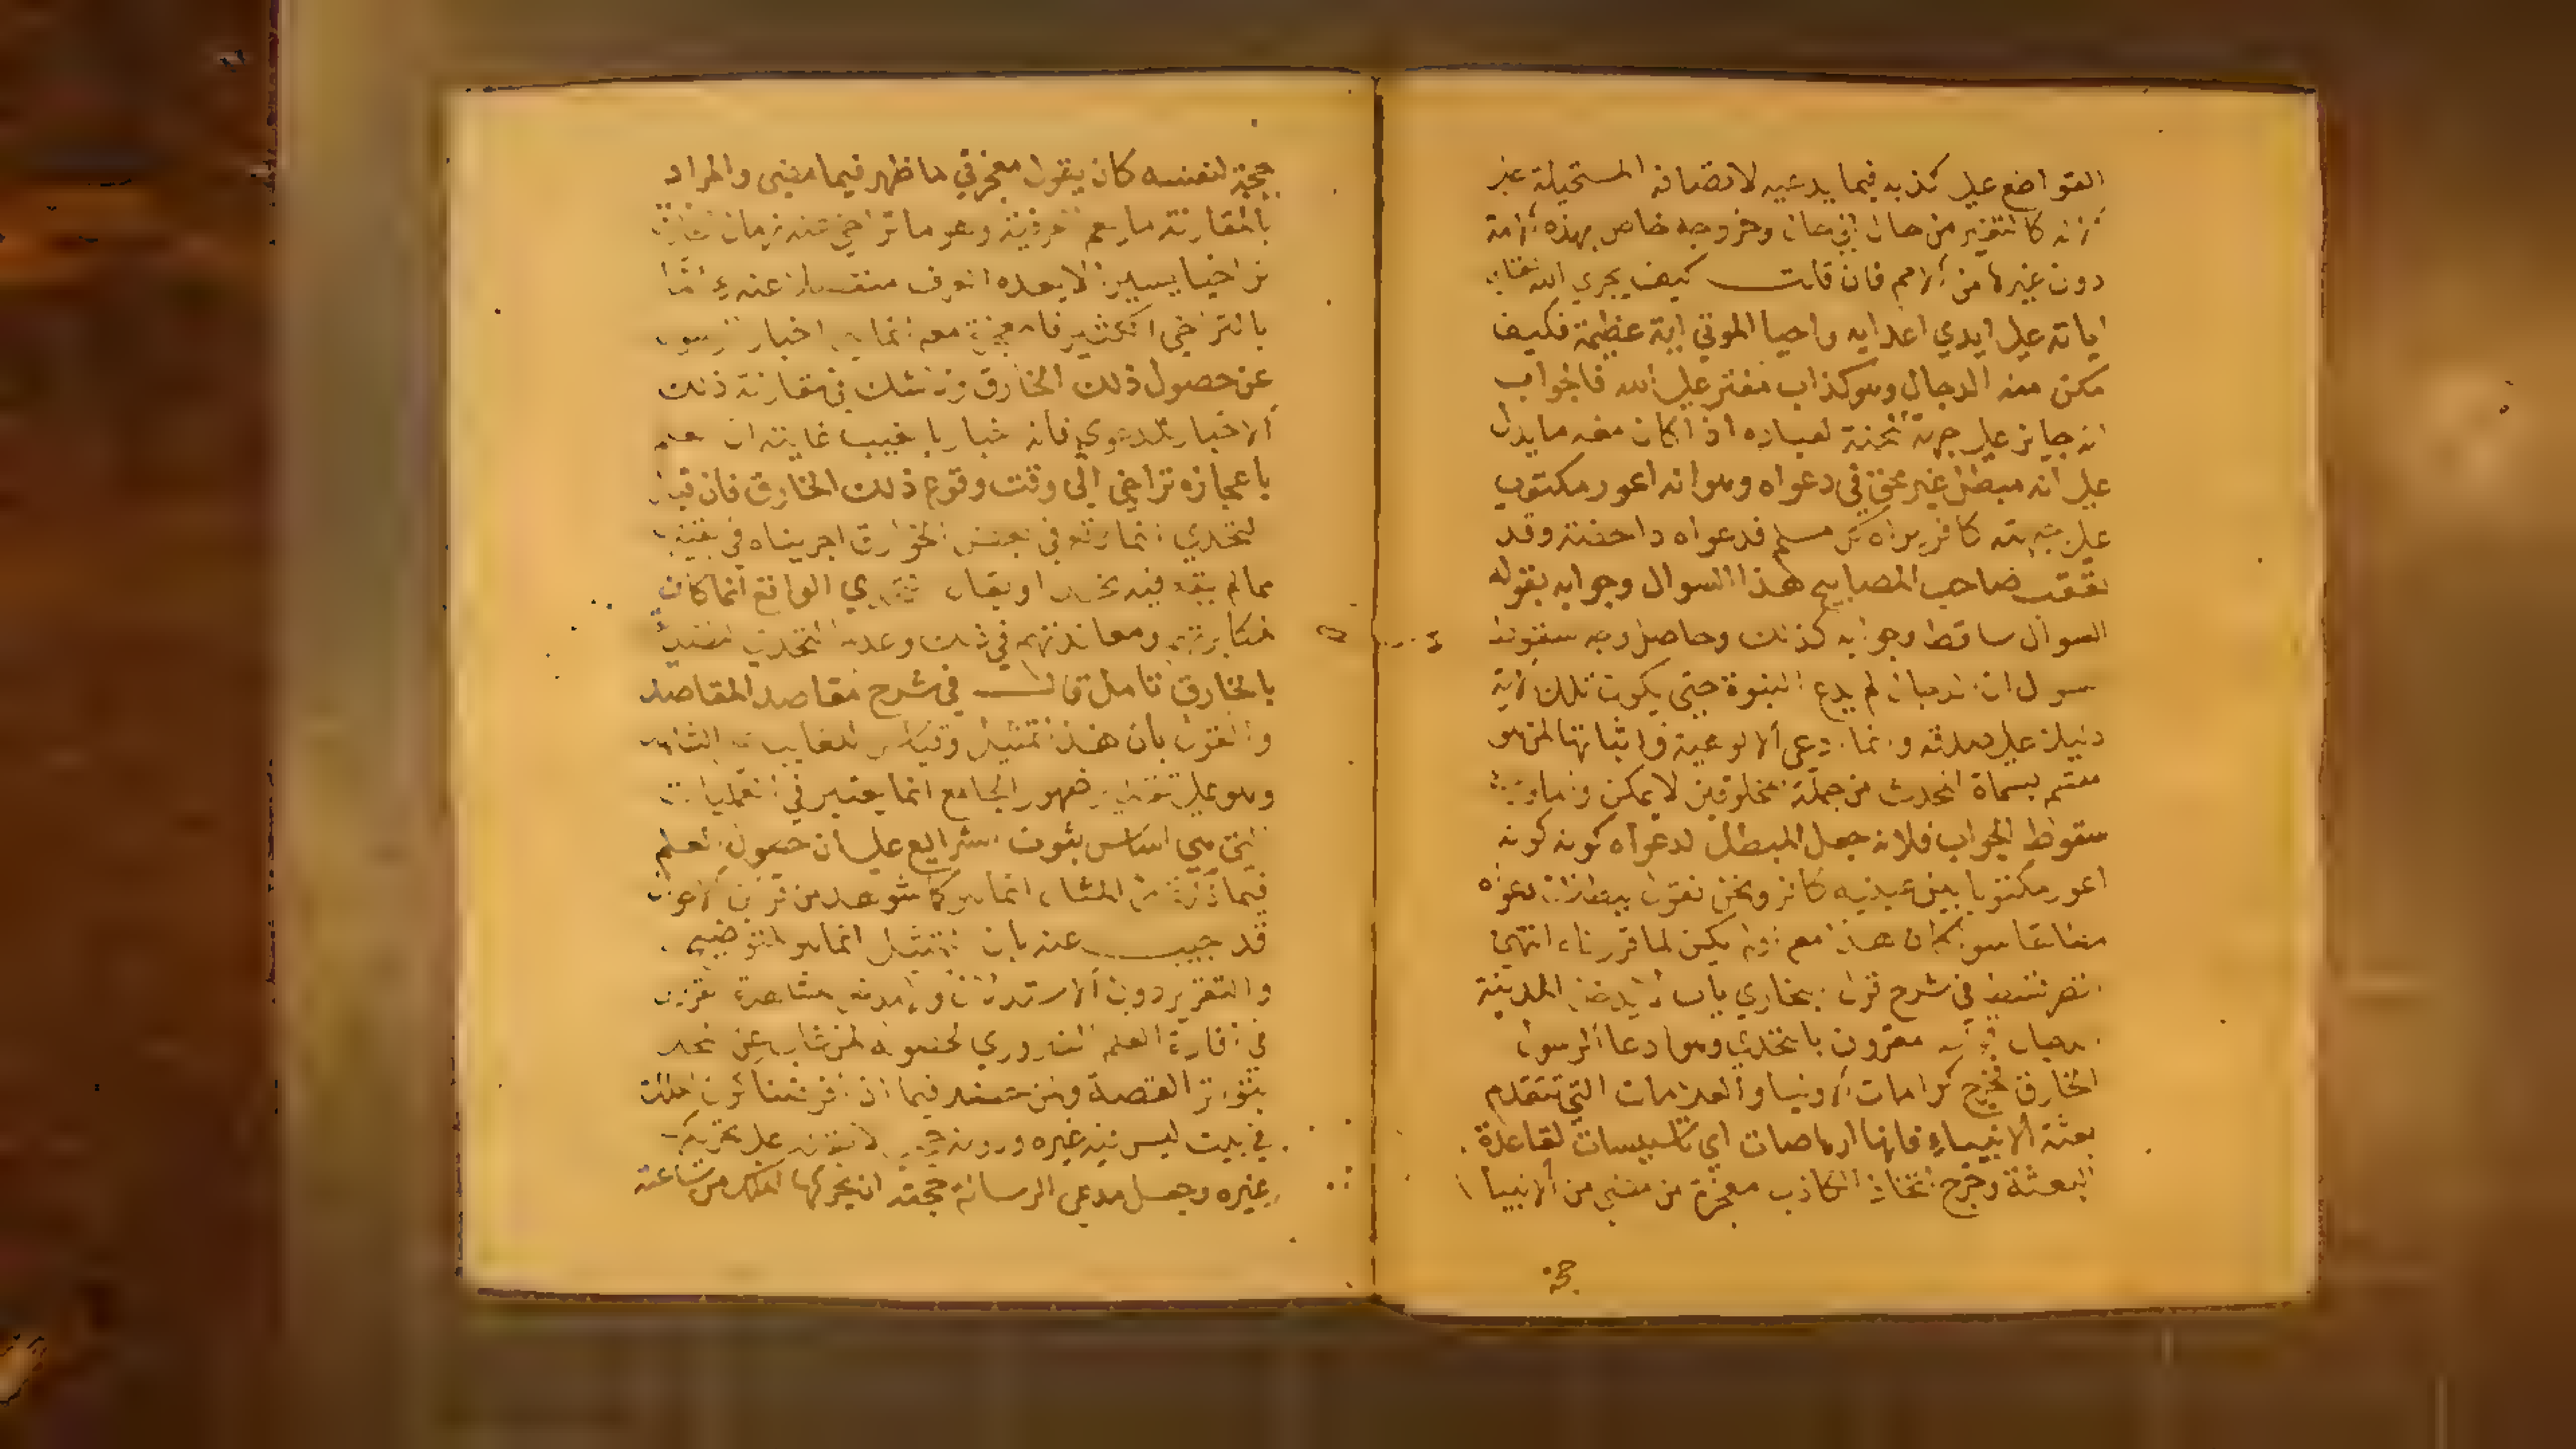 القواضع علي كذبه فيما يدعيه لاتصافه المستحيلة عن
كالتغير من حال الي حال وخروجه خاص بهذه الامة
دون غيرها من الامم فان قلت كيف يجري الله تعالي
اياته علي ايدي اعدايه واحيا الموتي اية عظيمة فكيف
مكن منه الدجال وهو كذاب مفتر علي الله فالجواب
انه جايز علي جهة المحنة لعباده اذا كان معه ما يدل
علي انه مبطل غير محق في دعواه وهو انه اعور مكتوب
علي جبهته كافر يراه كل مسلم فدعواه داحضة وقد
تعقب صاحب المصابيح هذا السوال وجوابه بقوله
السوال ساقط وجوابه كذلك وحاصل وجه سقوط
السوال ان الدجال لم يدع النبوة حتي يكون تلك الاية
دليلا علي صدقه وانما ادعي الالوهية واثباتها لمن هو
متسم بسماة الحدث من جملة المخلوقين لا يمكن واما
سقوط الجواب فلانه جعل المبطل لدعواه كونه كونه
اعور مكتوبا بين عينيه كافر ونحن نقول ببطلان دعواه
مطلقا سوا كان هذا معه اولم يكن لما قررناه انتهي
في شرح قول البخاري باب لا يدخل المدينة
الدجال مقرون بالتحدي وهو ادعا الرسول
الخارق فخرج كرامات الاوليا والعلامات التي تتقدم
بعثة الانبياء فانها ارهاصات اي تاسيسات لقاعدة
البعثة وخرج اتخاذ الكاذب معجزة من مضي من الانبيا
حجة
حجة لنفسه كان يقول معجزتي ما ظهر فيما مضي والمراد
بالمقارنة ما يعم العرفية وهو ما تراخي عنه زمان
تراخيا يسيرا لا يعده العرف منفصلا عنه واما
بالتراخي الكثير فالمعجزة معه انما هي اخبار الرسول
عن حصول ذلك الخارق ولا شك في مقارنة ذلك
الاخبار للدعوي فانه اخبار بالغيب غايته ان علم
باعجازه تراخي الي وقت وقوع ذلك الخارق فان قيل
التحدي انما وقع في بعض الخوارق اجريناه في بقيتها
مما لم يقع فيه تحد او يقال التحدي الواقع انما كان
لمكابرتهم ومعاندتهم في ذلك وعدم التحدي
بالخارق تامل قال في شرح مقاصد المقاصد
والقول بان هذا تمثيل وقياس للغايب
وهو علي تقدير ظهور الجامع انما يعتبر في العمليات
التي هي اساس ثبوت الشرايع علي ان حصول العلم
فيما ذكرت من المثال انما هو لما شوهد من قراين الاحوال
قد اجيب عنه بان التمثيل انما هو للتوضيح
والتقرير دون الاستدلال ولا مدخل لمشاهدة القراين
في افادة العلم الضروري لحصوله لمن غاب عن
بتواتر القصة ولمن حضر فيما اذا فرضنا كون الملك
في بيت ليس فيه غيره ودونه لا يقدر علي تحريكها
غيره وجعل مدعي الرسالة حجته ان يحركها الملك من ساعته